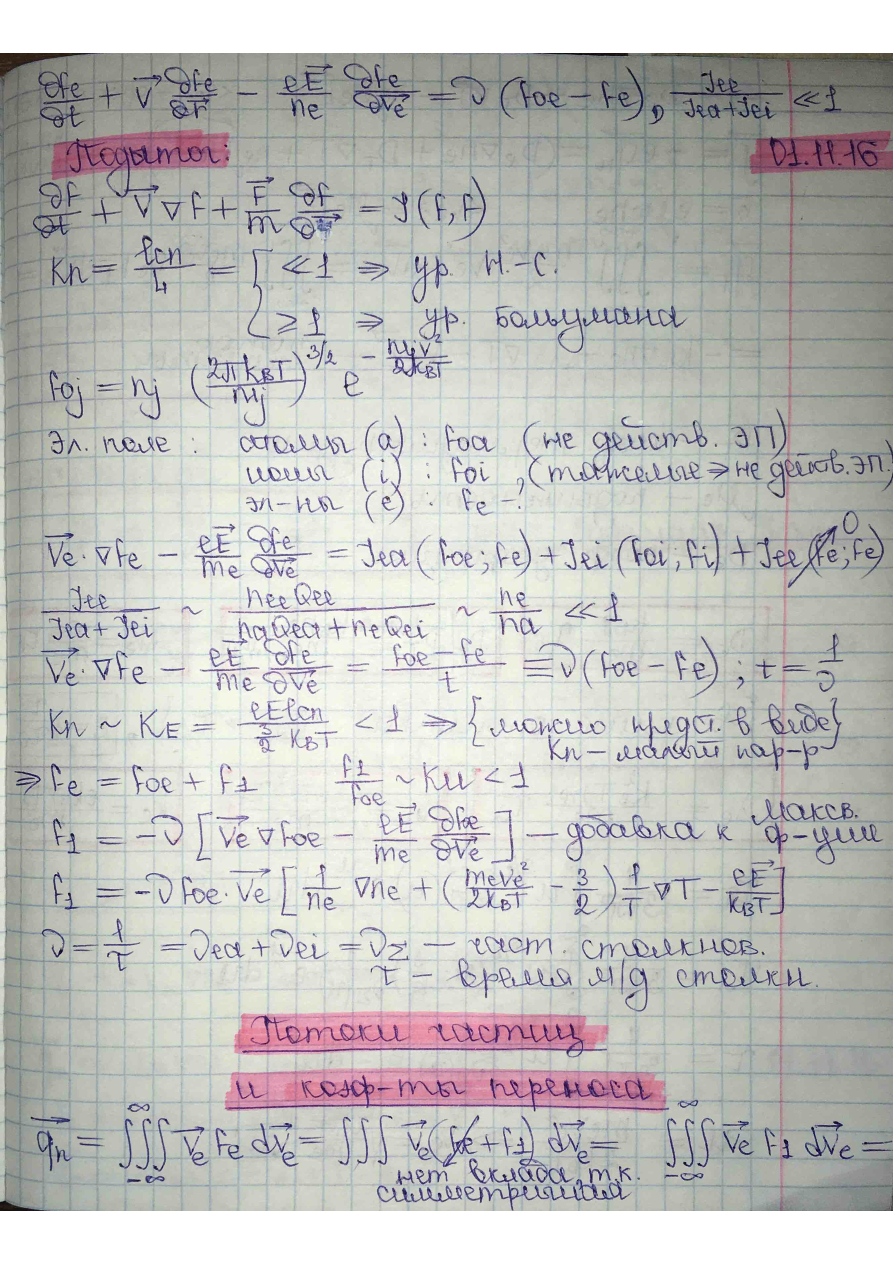 ∂fe/∂t + V⃗ ∂fe/∂r⃗ − eE⃗/me ∂fe/∂V⃗e = ν (foe − fe), Jee/(Jea+Jei) ≪ 1
Подытог: 01.11.16
∂f/∂t + V⃗ ∇f + F⃗/m ∂f/∂V⃗ = J(f,f)
Kn = lсп/L = { ≪ 1 ⇒ ур. Н.-С.
≥ 1 ⇒ ур. Больцмана
foj = nj (2πkBT/mj)^3/2 e^−mjv²/2kBT
Эл. поле: атомы (a) : foa (не действ. ЭП)
ионы (i) : foi, (тяжелые ⇒ не действ. эп.)
эл-ны (e) : fe − ?
V⃗e · ∇fe − eE⃗/me ∂fe/∂V⃗e = Jea (foe; fe) + Jei (foi; fi) + Jee (fe; fe) 0
Jee/(Jea+Jei) ~ neeQee/(naQea + neQei) ~ ne/na ≪ 1
V⃗e · ∇fe − eE⃗/me ∂fe/∂V⃗e = (foe − fe)/t ≡ ν (foe − fe) ; t = 1/ν
Kn ~ KE = eElсп/(3/2 kBT) < 1 ⇒ {можно предст. в виде}
Kn − малый пар-р
⇒ fe = foe + f1 f1/foe ~ Kn < 1
f1 = −ν [V⃗e ∇foe − eE⃗/me ∂foe/∂V⃗e] — добавка к максв. ф-ции
f1 = −ν foe · V⃗e [1/ne ∇ne + (meVe²/2kBT − 3/2) 1/T ∇T − eE⃗/kBT]
ν = 1/τ = νea + νei = νΣ — част. столкнов.
τ − время м/д столкн.
Потоки частиц
и коэф-ты переноса
q⃗n = ∭_−∞^∞ V⃗e fe dV⃗e = ∭ V⃗e (foe + f1) dV⃗e = ∭_−∞^∞ V⃗e f1 dV⃗e =
нет вклада, т.к.
симметричная